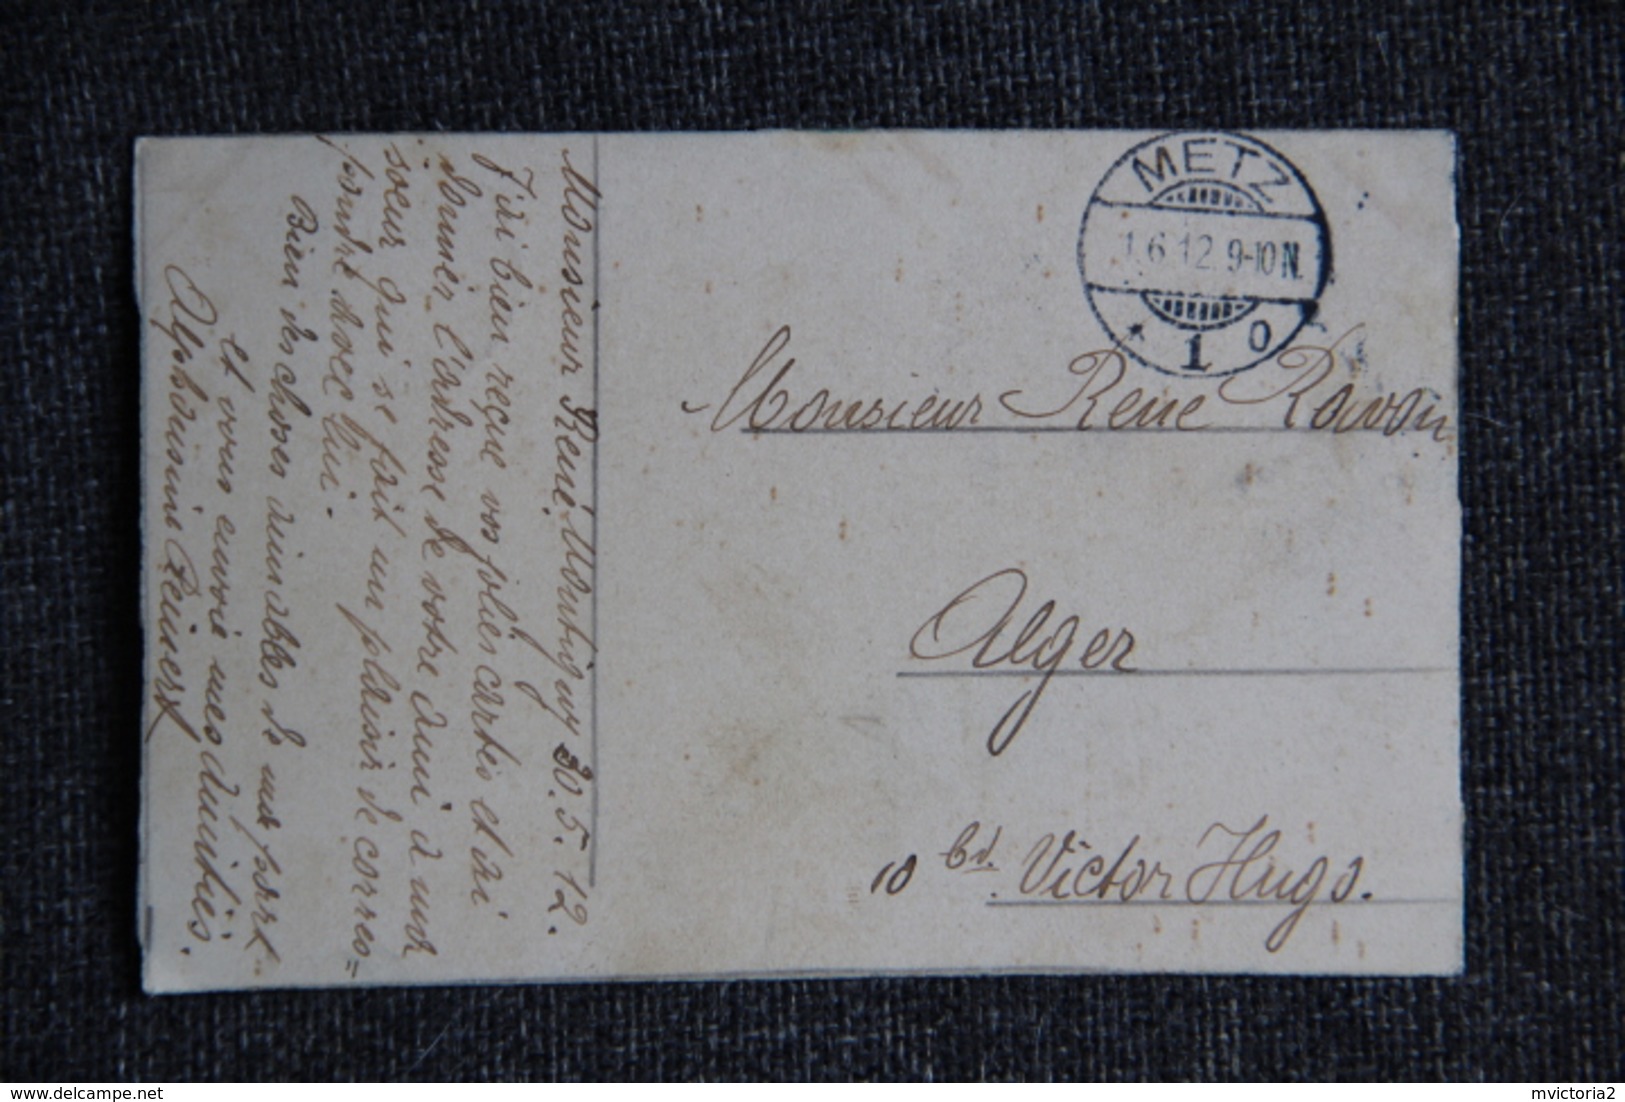 METZ
1.6.12.9-10 N.
* 1 o
Monsieur Rene Ravon
Alger
10 bd. Victor Hugo.
Montigny 30.5.12.
Monsieur René,
J'ai bien reçue vos jolies cartes et ai
donner l'adresse de votre ami à une
soeur qui se fait un plaisir de corres=
pondre avec lui.
Bien des choses aimables de ma part
et vous envoie mes amitiés.
Alphonsine Reinert
delcampe.net
mvictoria2